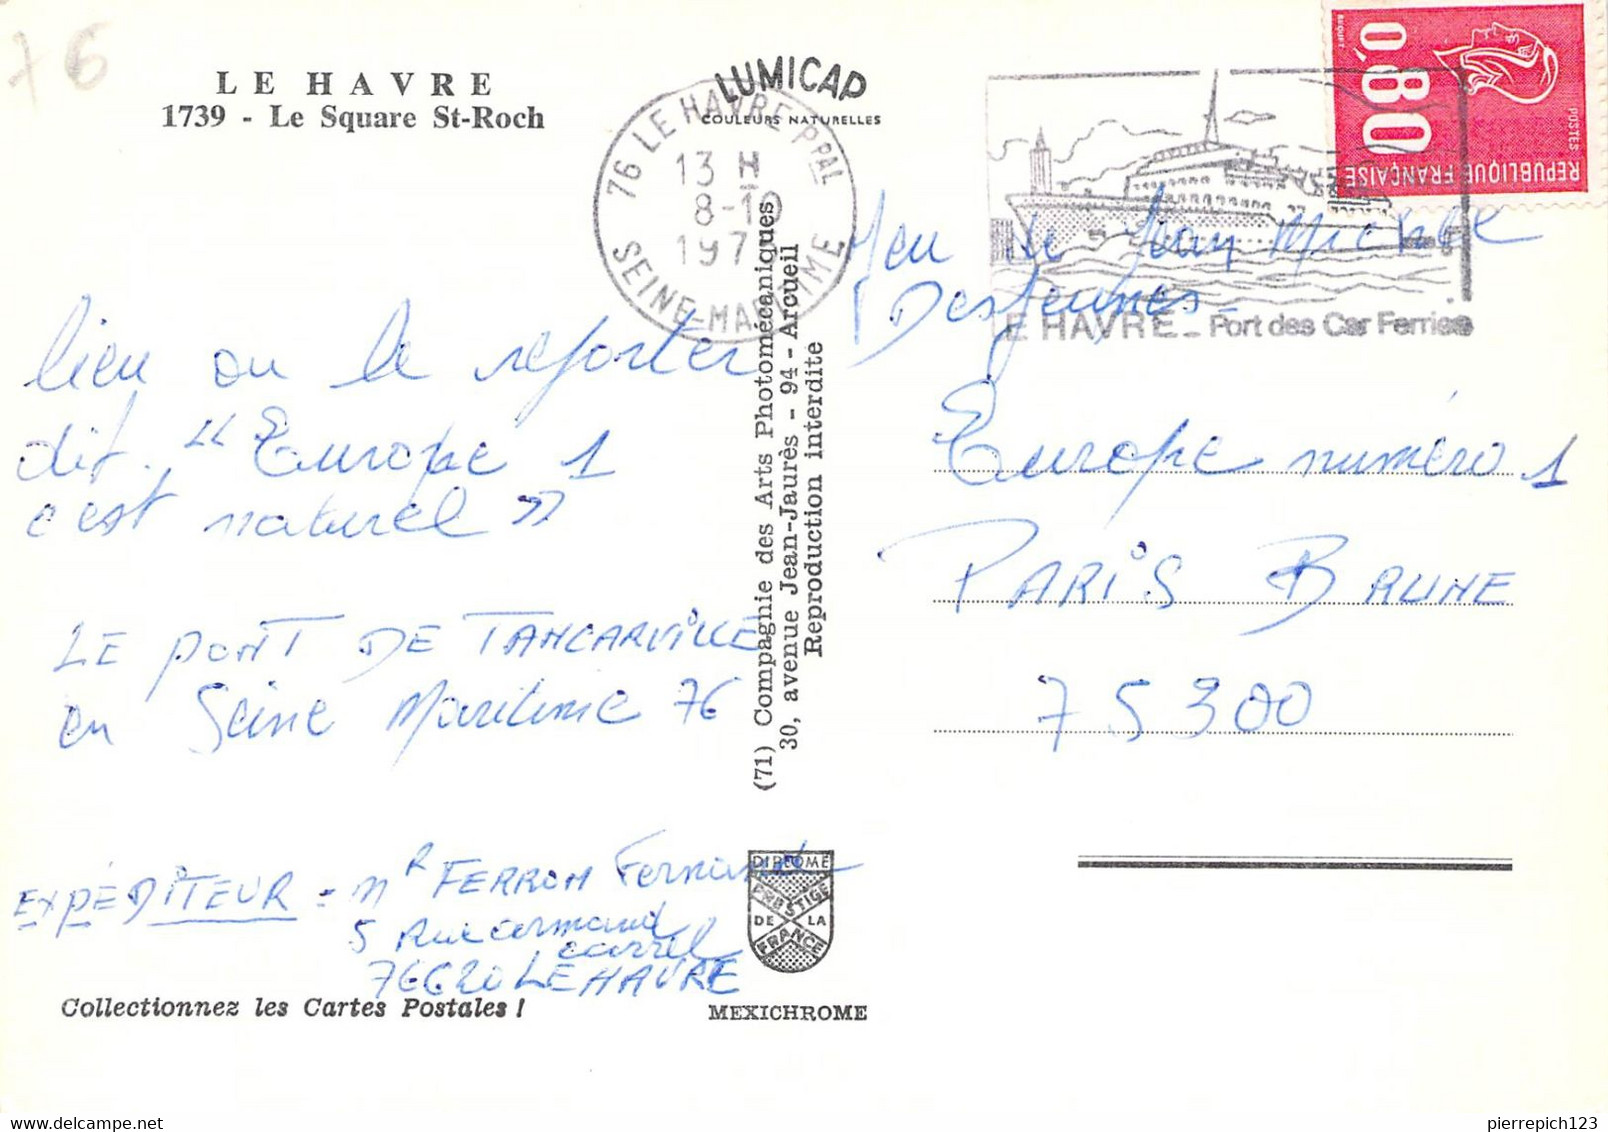 76
LE HAVRE
1739 - Le Square St-Roch
LUMICAP
COULEURS NATURELLES
76 LE HAVRE PPAL
13 H
8-10
197
SEINE-MARITIME
E HAVRE - Port des Car Ferries
0,80
POSTES
REPUBLIQUE FRANÇAISE
BEQUET
Jeu de Jean Michel
Desjeunes
Europe numéro 1
PARIS BRUNE
75300
lieu ou le reporter
dit. "Europe 1
c'est naturel"
LE PONT DE TANCARVILLE
en Seine Maritime 76
EXPÉDITEUR = Mr FERRON Fernand
5 Rue armand
carrel
76620 LE HAVRE
(71) Compagnie des Arts Photomécaniques
30, avenue Jean-Jaurès - 94 - Arcueil
Reproduction interdite
DIPLOME
PRESTIGE
DE LA
FRANCE
Collectionnez les Cartes Postales !
MEXICHROME
pierrepich123